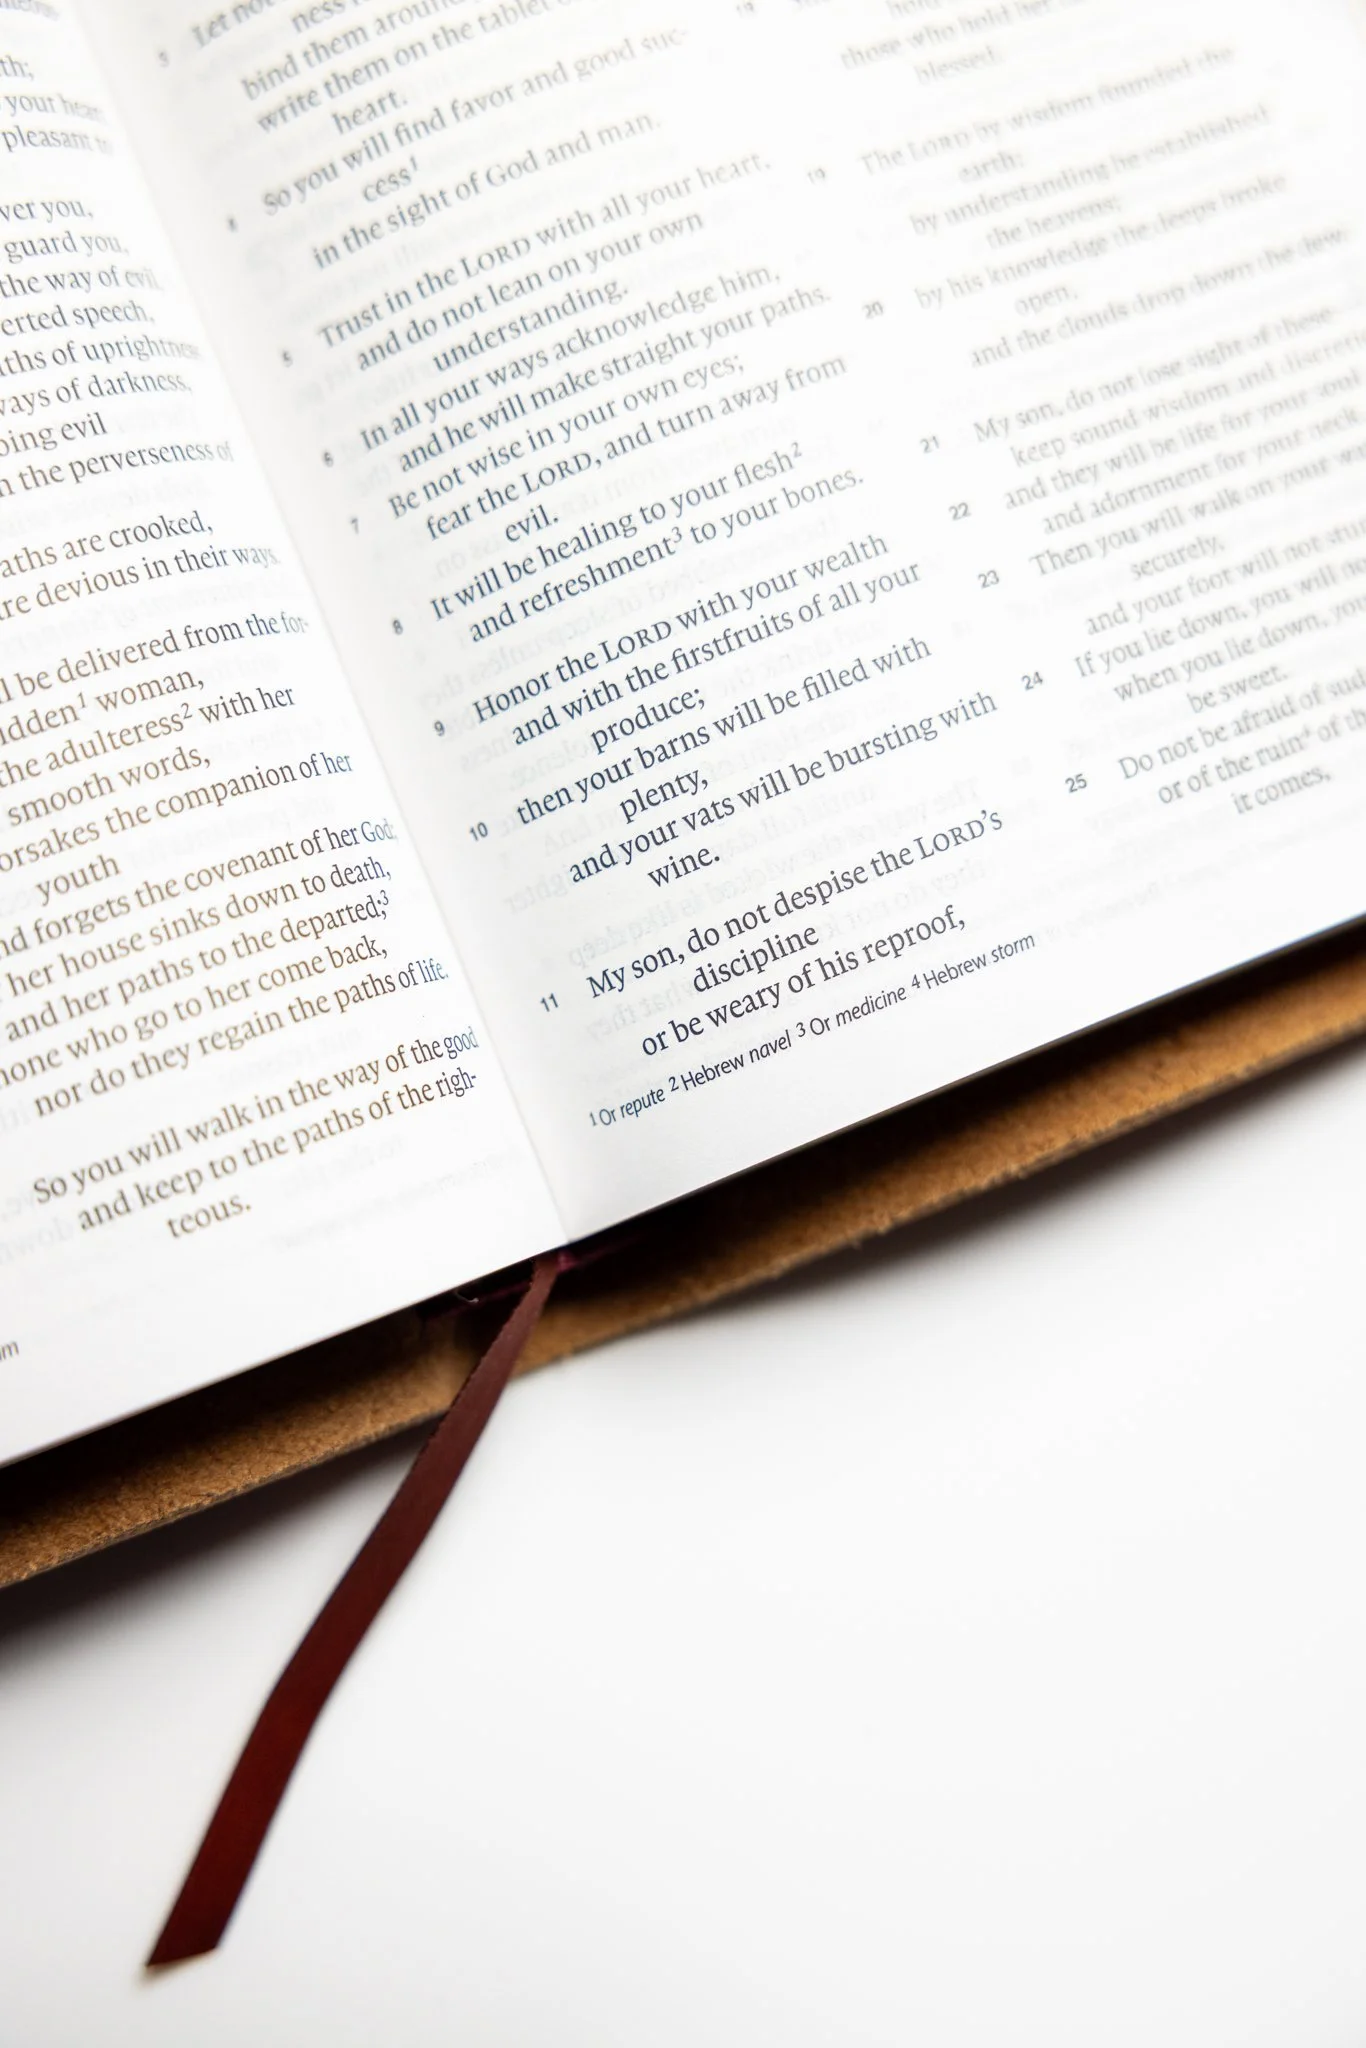 th;
your hear
pleasant
ver you,
guard you,
the way of evil,
erted speech,
ths of uprightness
ways of darkness,
oing evil
n the perverseness of
aths are crooked,
re devious in their ways.
ll be delivered from the for-
idden¹ woman,
the adulteress² with her
smooth words,
orsakes the companion of her
youth
nd forgets the covenant of her God;
her house sinks down to death,
and her paths to the departed;³
none who go to her come back,
nor do they regain the paths of life.
So you will walk in the way of the good
and keep to the paths of the righ-
teous.
Let not
ness
bind them around
write them on the tablet of
heart.
So you will find favor and good suc-
cess¹
in the sight of God and man.
5 Trust in the LORD with all your heart,
and do not lean on your own
understanding.
6 In all your ways acknowledge him,
and he will make straight your paths.
7 Be not wise in your own eyes;
fear the LORD, and turn away from
evil.
8 It will be healing to your flesh²
and refreshment³ to your bones.
9 Honor the LORD with your wealth
and with the firstfruits of all your
produce;
10 then your barns will be filled with
plenty,
and your vats will be bursting with
wine.
11 My son, do not despise the LORD's
discipline
or be weary of his reproof,
those who hold her
blessed.
19 The LORD by wisdom founded the
earth;
by understanding he established
the heavens;
20 by his knowledge the deeps broke
open,
and the clouds drop down the dew.
21 My son, do not lose sight of these—
keep sound wisdom and discreti
22 and they will be life for your soul
and adornment for your neck.
23 Then you will walk on your wa
securely,
and your foot will not stu
24 If you lie down, you will no
when you lie down, you
be sweet.
25 Do not be afraid of sud
or of the ruin⁴ of th
it comes,
¹ Or repute ² Hebrew navel ³ Or medicine ⁴ Hebrew storm